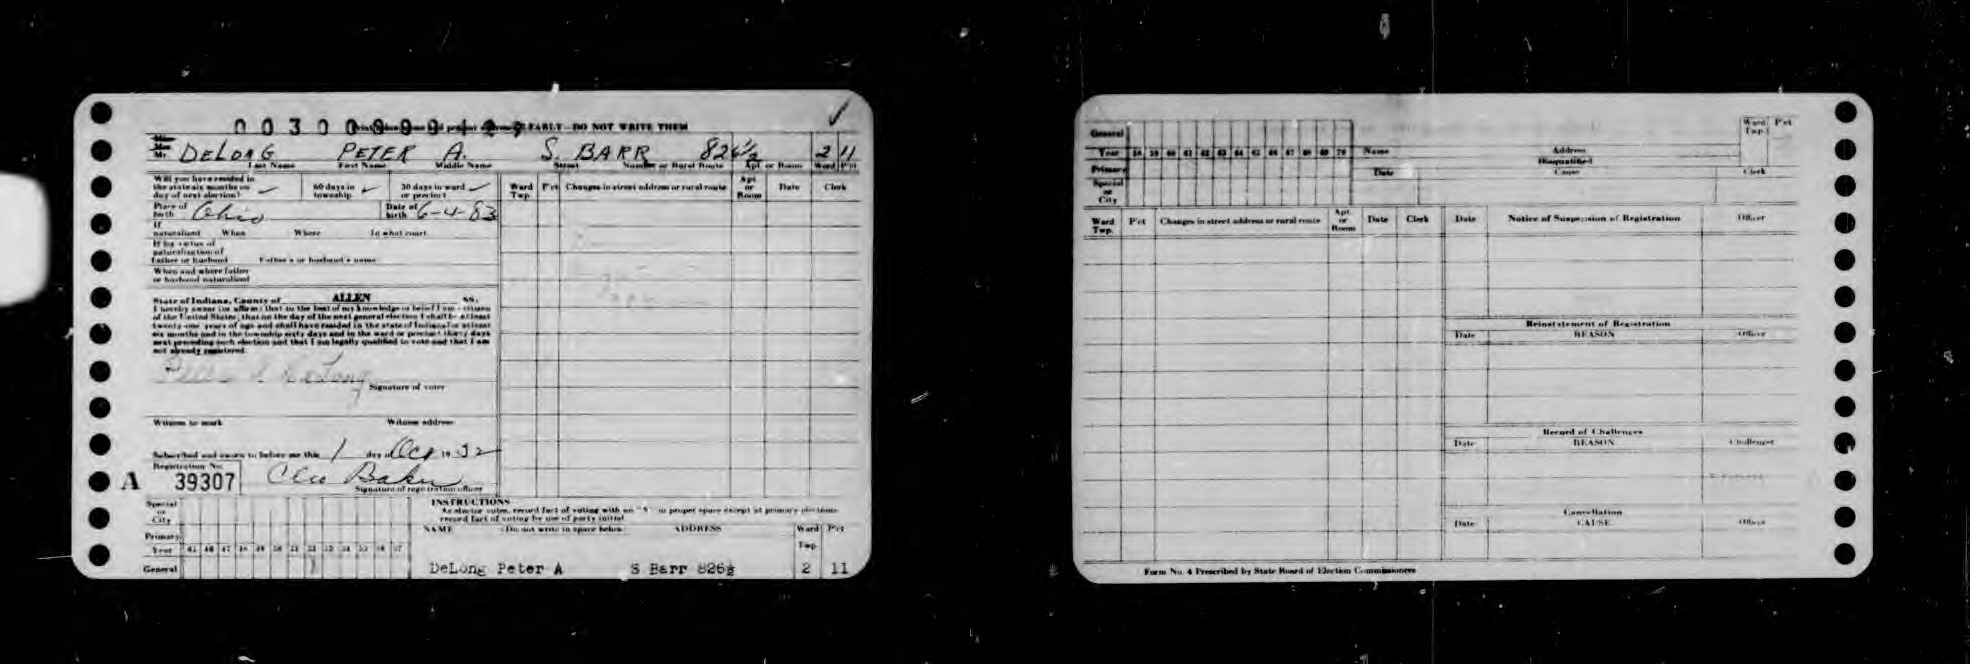 PLAINLY—DO NOT WRITE THEM
Mr. DeLONG PETER A. S. BARR 826½ 2 11
Last Name First Name Middle Name Street Number or Rural Route Apt. or Room Ward P'ct
Will you have resided in the state six months on day of next election? ✓ 60 days in township ✓ 30 days in ward or precinct ✓
Ward Twp. P'ct Changes in street address or rural route Apt. or Room Date Clerk
Place of birth Ohio Date of birth 6-4-83
If naturalized When Where In what court
If by virtue of naturalization of Father or husband Father's or husband's name
When and where father or husband naturalized
State of Indiana, County of ALLEN SS:
I hereby swear (or affirm) that to the best of my knowledge or belief I am a citizen
of the United States; that on the day of the next general election I shall be at least
twenty-one years of age and shall have resided in the state of Indiana for at least
six months and in the township sixty days and in the ward or precinct thirty days
next preceding such election and that I am legally qualified to vote and that I am
not already registered.
Peter A DeLong
Signature of voter
Witness to mark Witness address
Subscribed and sworn to before me this 1 day of Oct 19 52
Registration No.
A 39307 Cleo Baker
Signature of registration officer
Special or City
Primary
Year 45 46 47 48 49 50 51 52 53 54 55 56 57
General
INSTRUCTIONS
As elector votes, record fact of voting with an "X" in proper space except at primary elections
record fact of voting by use of party initial.
NAME (Do not write in space below) ADDRESS Ward Twp. P'ct
DeLong Peter A S Barr 826½ 2 11
General
Year 58 59 60 61 62 63 64 65 66 67 68 69 70
Primary
Special or City
Name Address Ward Twp. P'ct
Disqualified
Date Cause Clerk
Ward Twp. P'ct Changes in street address or rural route Apt. or Room Date Clerk
Date Notice of Suspension of Registration Officer
Reinstatement of Registration
Date REASON Officer
Record of Challenges
Date REASON Challenger
Cancellation
Date CAUSE Officer
Form No. 4 Prescribed by State Board of Election Commissioners